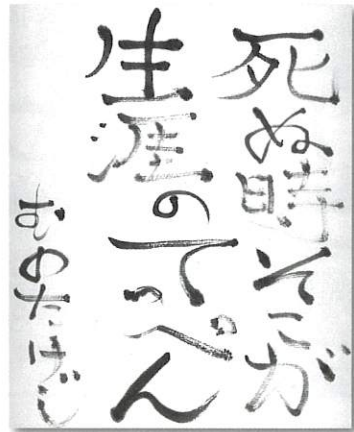 死ぬ時そこが
生涯のてっぺん
むのたけじ